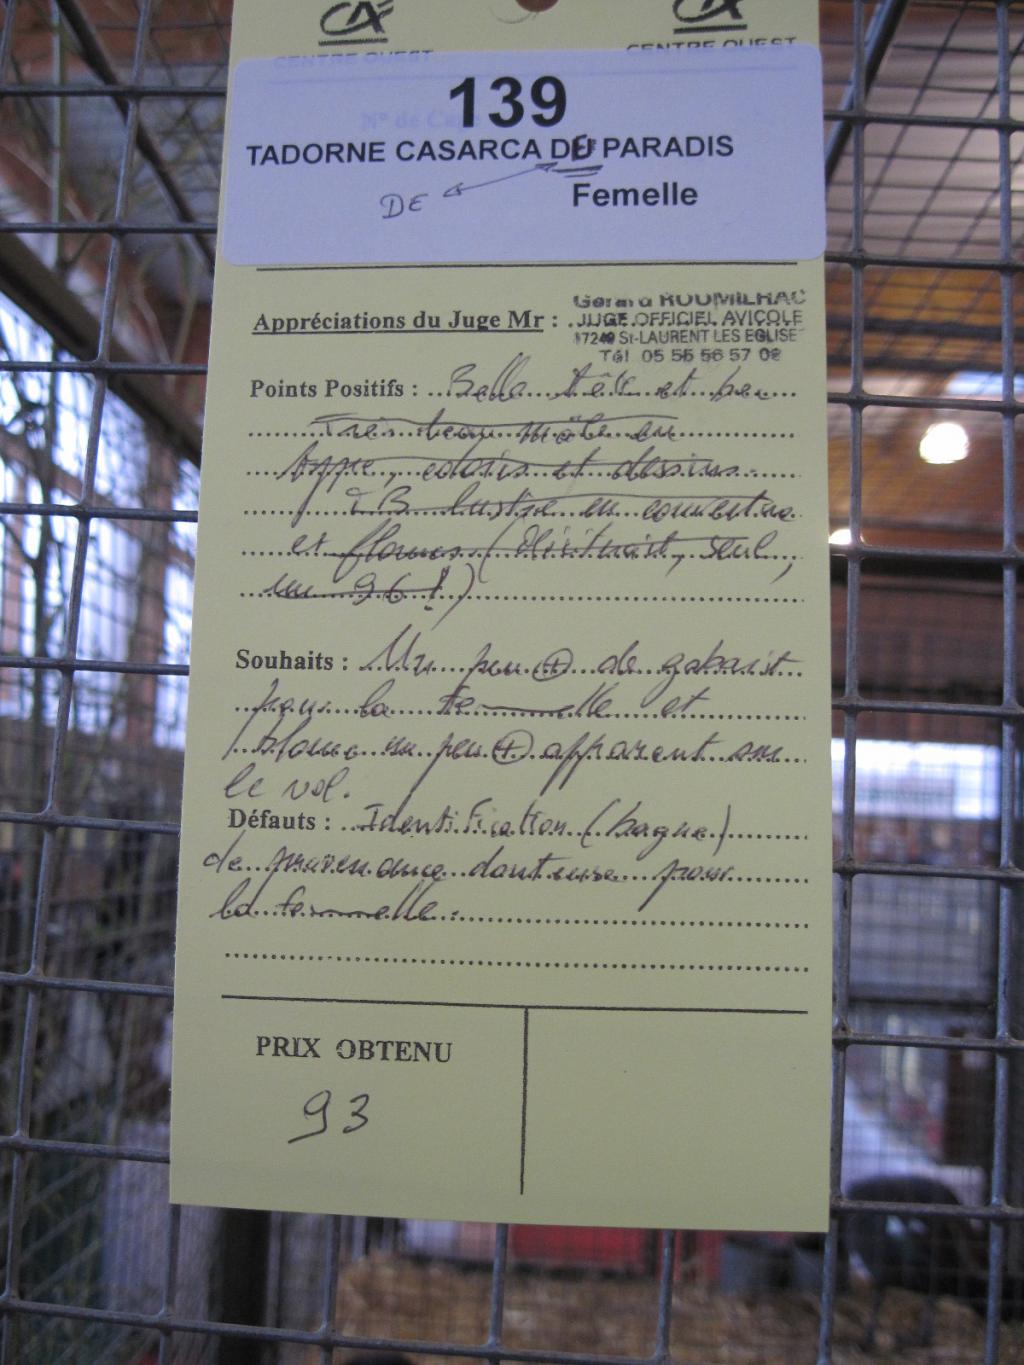 CA CA
CENTRE OUEST CENTRE OUEST
N° de Cage
139
TADORNE CASARCA DU PARADIS
DE
Femelle
Appréciations du Juge Mr :
Gérard ROUMILHAC
JUGE OFFICIEL AVICOLE
17240 St-LAURENT LES EGLISE
Tél 05 55 56 57 02
Points Positifs : Belle tête et bec
Très beau mâle en
type, coloris et dessins
TB lustre en couverture
et flancs (Méritait, seul,
un 96 !)
Souhaits : Un peu + de gabarit
pour la femelle et
blanc un peu + apparent sur
le vol.
Défauts : Identification (bague)
de provenance douteuse pour
la femelle.
PRIX OBTENU
93